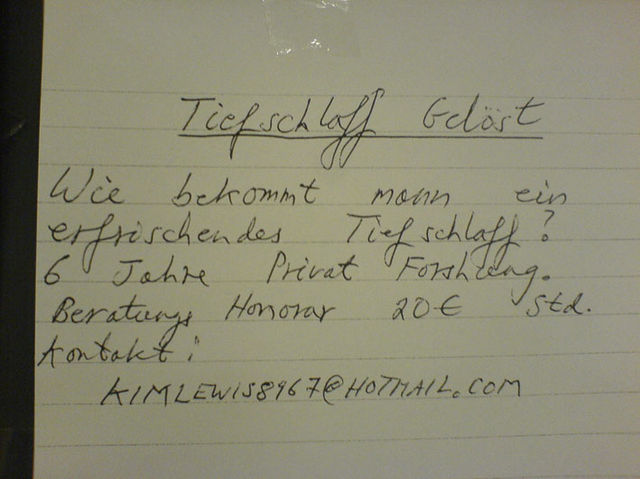 Tiefschlaff Gelöst
Wie bekommt mann ein
erfrischendes Tiefschlaff?
6 Jahre Privat Forshung.
Beratungs Honorar 20€ Std.
Kontakt:
KIMLEWIS8967@HOTMAIL.COM